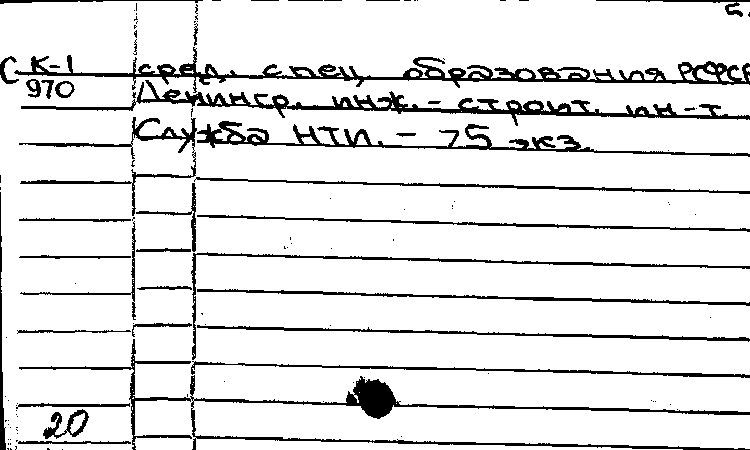 5.
С К-1 сред. спец. образования РСФСР
970 Ленингр. инж.-строит. ин-т.
Служба НТИ. - 75 экз.
20